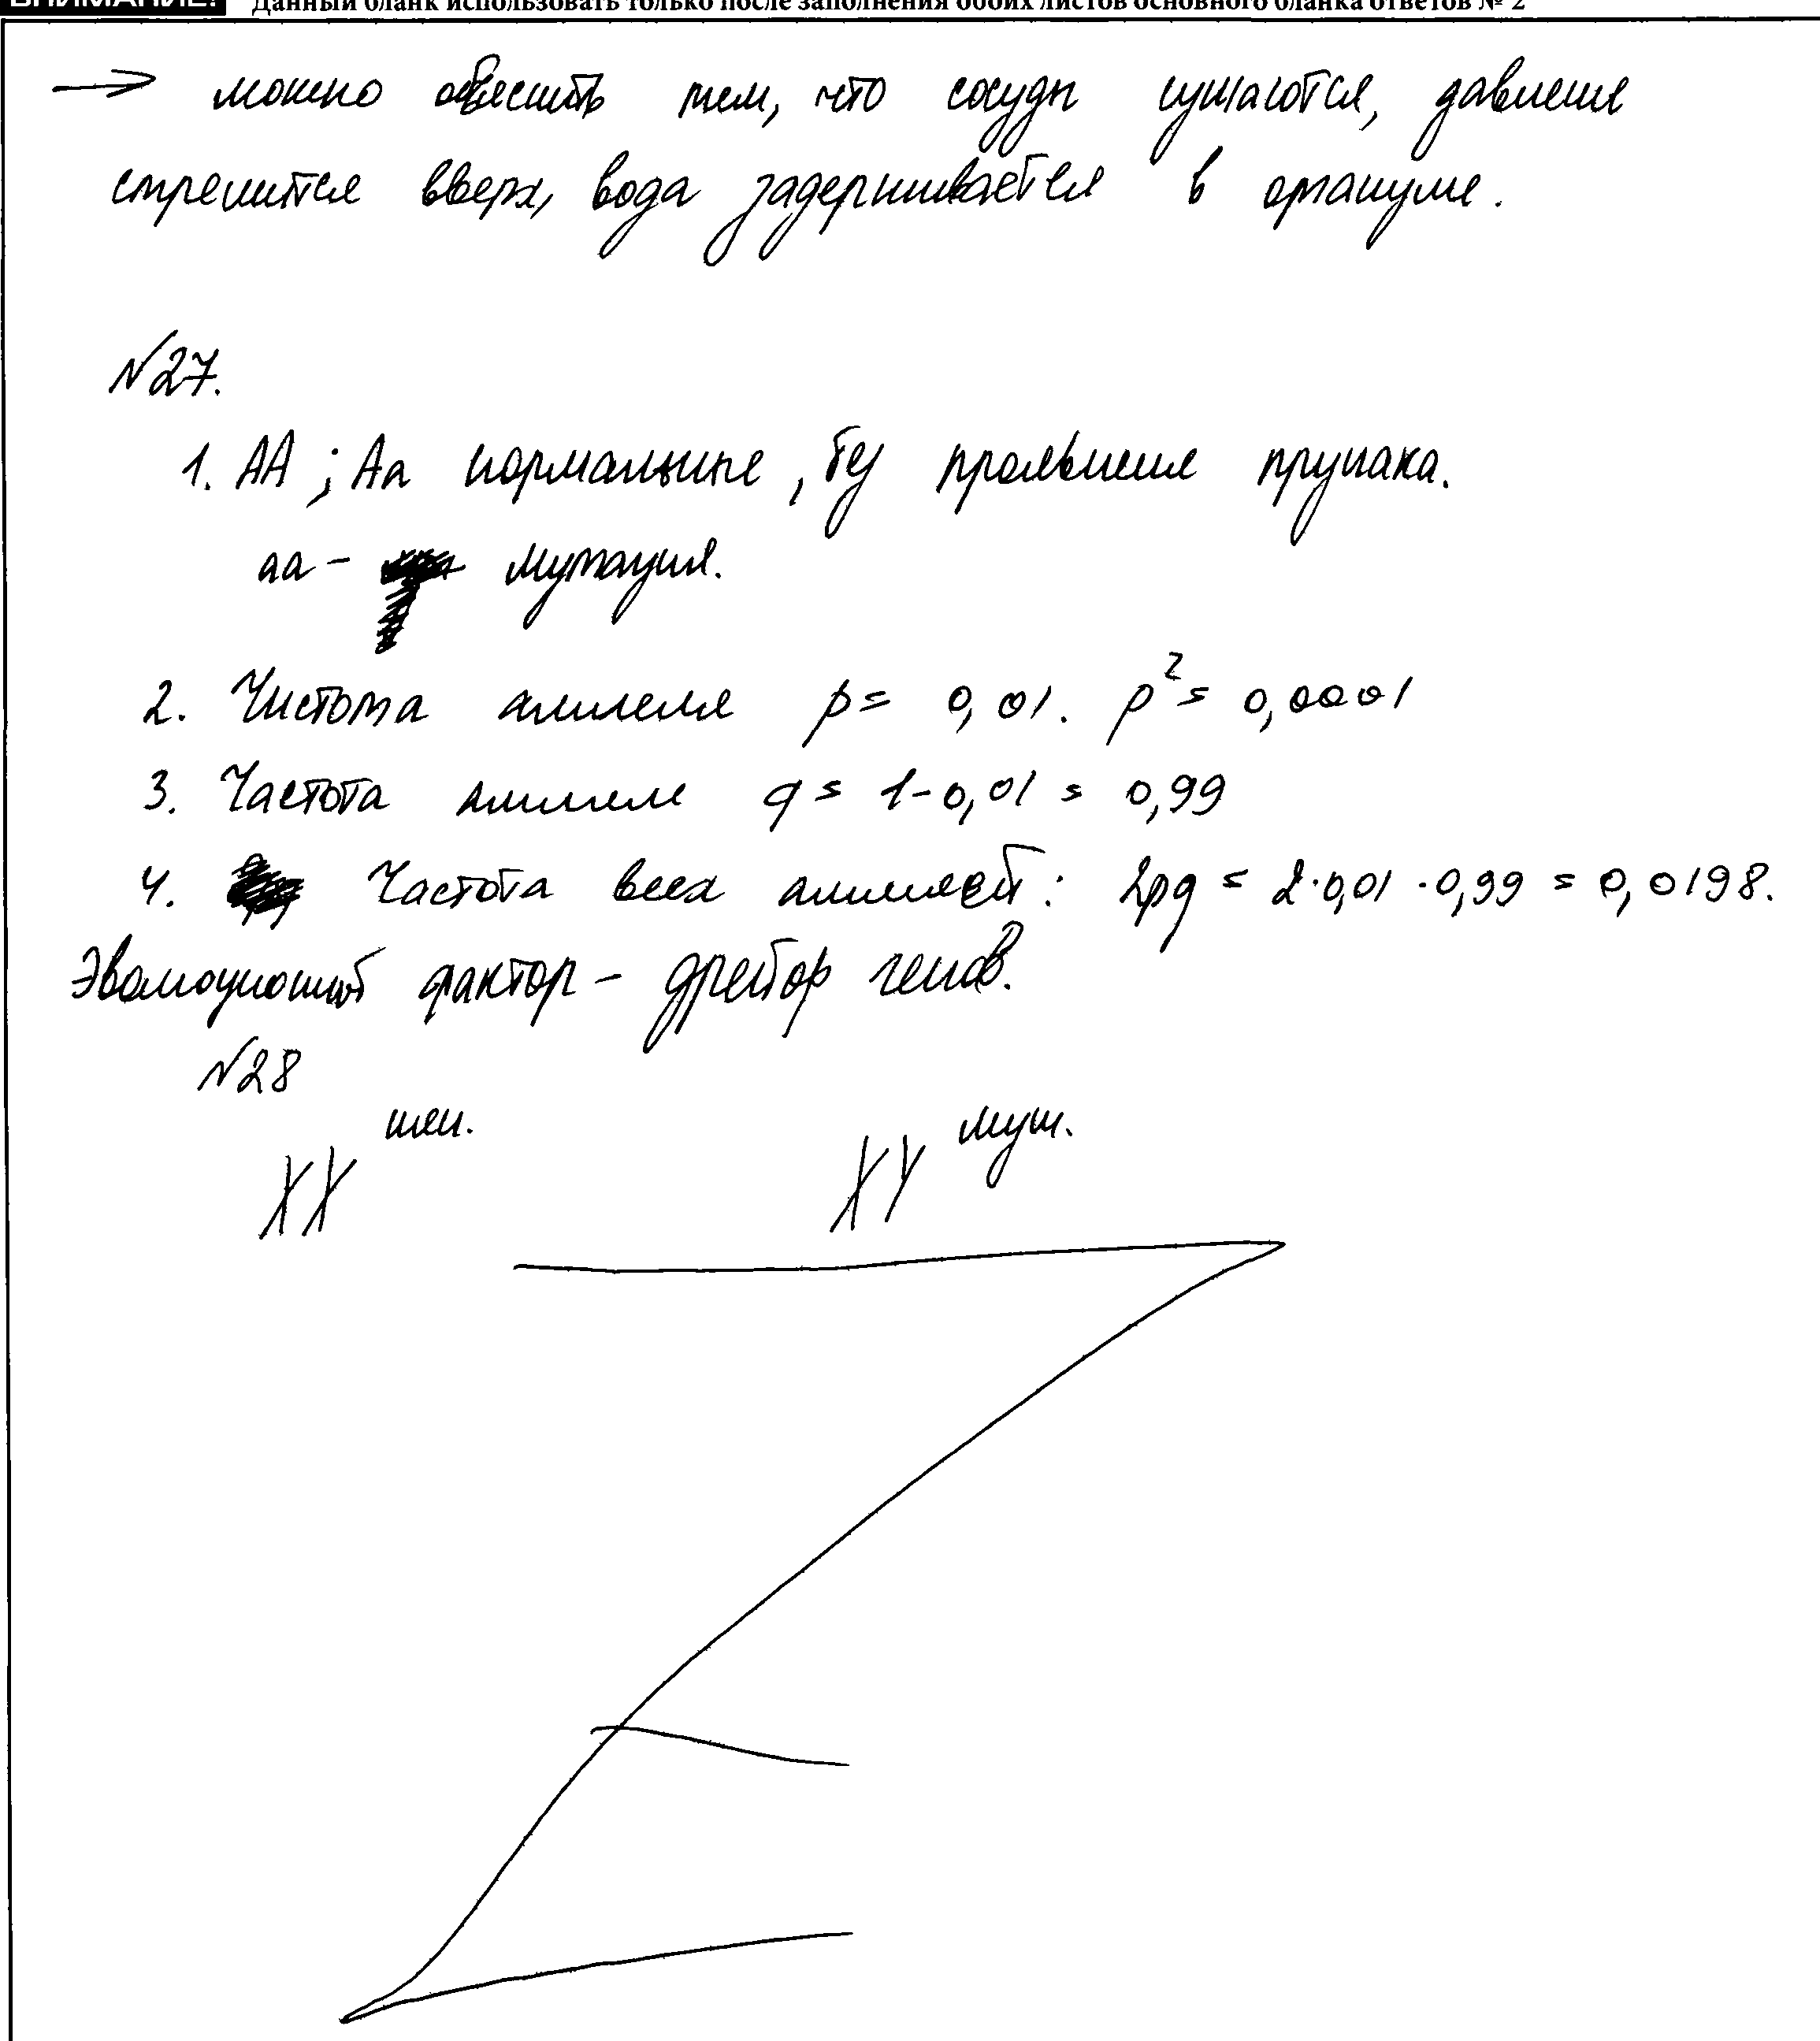 ВНИМАНИЕ! Данный бланк использовать только после заполнения обоих листов основного бланка ответов № 2
→ можно объяснить тем, что сосуды сужаются, давление
стремится вверх, вода задерживается в организме.
№27.
1. АА ; Аа нормальные, без проявления признака.
аа - мутация.
2. Чистота аллеля p = 0,01. p² = 0,0001
3. Частота аллеля q = 1-0,01 = 0,99
4. Частота всех аллелей: 2pq = 2·0,01·0,99 = 0,0198.
Эволюционный фактор - дрейф генов.
№28
XX жен. XY муж.
Z